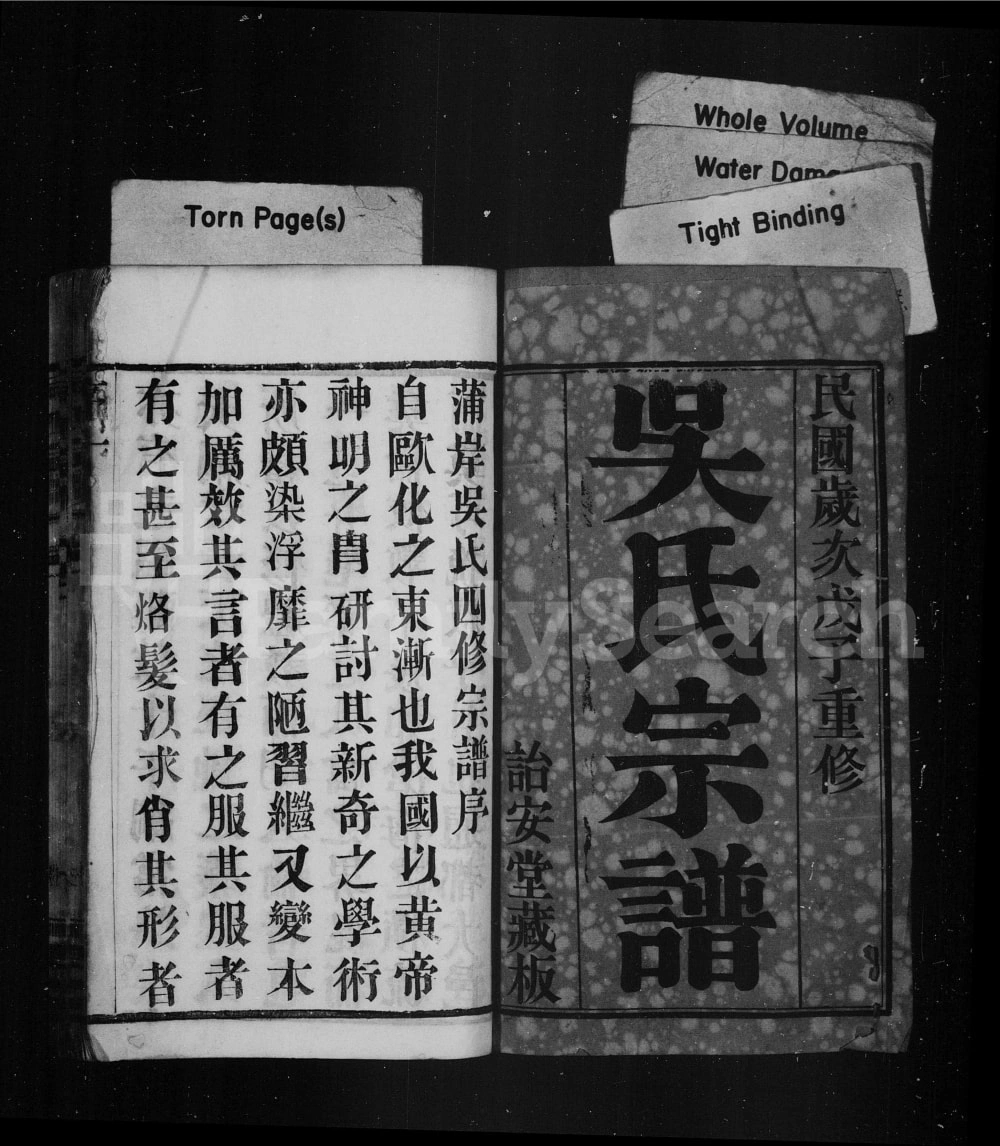 Torn Page(s)
Whole Volume
Water Dama
Tight Binding
民國歲次戊子重修
吳氏宗譜
詒安堂藏板
蒲岸吳氏四修宗譜序
自歐化之東漸也我國以黃帝
神明之胄研討其新奇之學術
亦頗染浮靡之陋習繼又變本
加厲效其言者有之服其服者
有之甚至烙髮以求肖其形者
FamilySearch